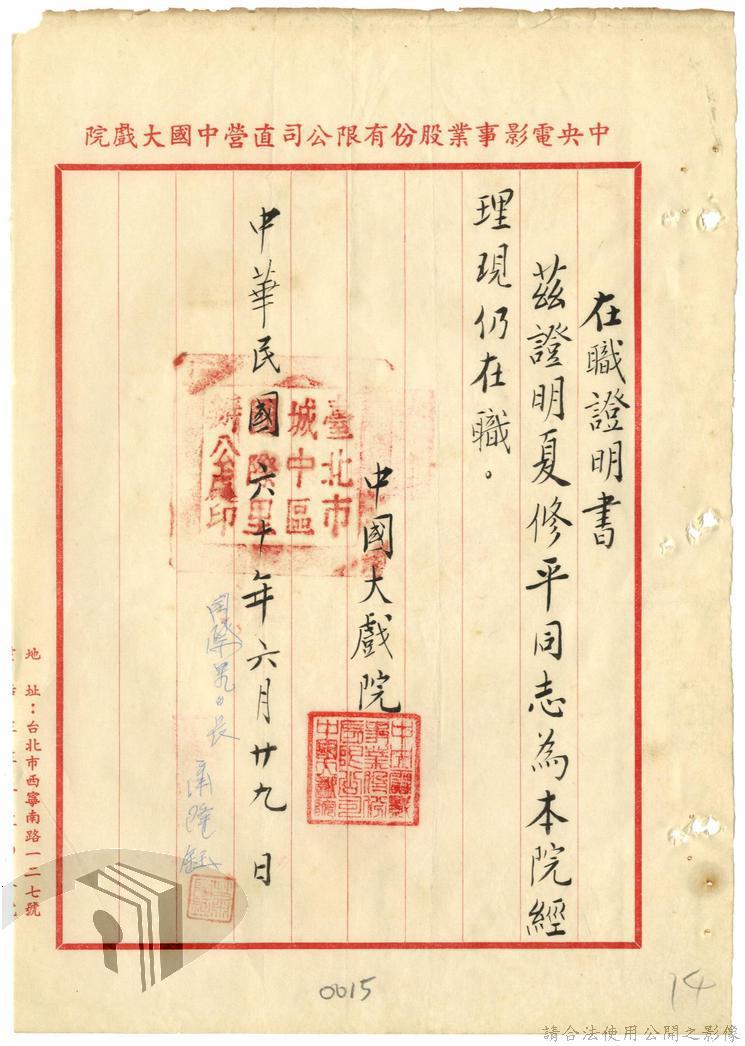 中央電影事業股份有限公司直營中國大戲院
在職證明書
茲證明夏修平同志為本院經
理現仍在職。
中國大戲院
中央電影
事業股份
有限公司
中國大戲院
中華民國六十年六月廿九日
臺北市
城中區
國際里
辦公處印
國際里里長
地址：台北市西寧南路一二七號
0015
14
請合法使用公開之影像